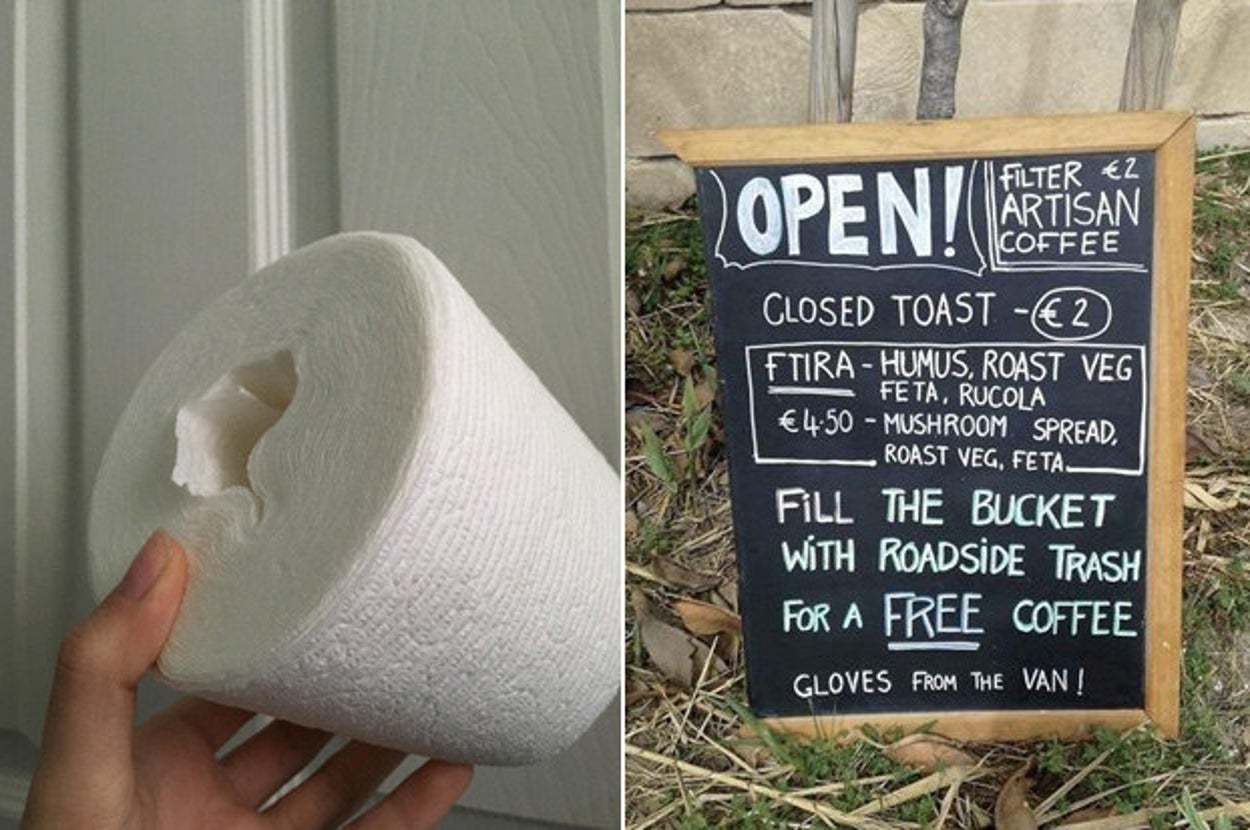 OPEN!
FILTER €2
ARTISAN
COFFEE
CLOSED TOAST - €2
FTIRA - HUMUS, ROAST VEG
FETA, RUCOLA
€4.50 - MUSHROOM SPREAD,
ROAST VEG, FETA
FILL THE BUCKET
WITH ROADSIDE TRASH
FOR A FREE COFFEE
GLOVES FROM THE VAN!